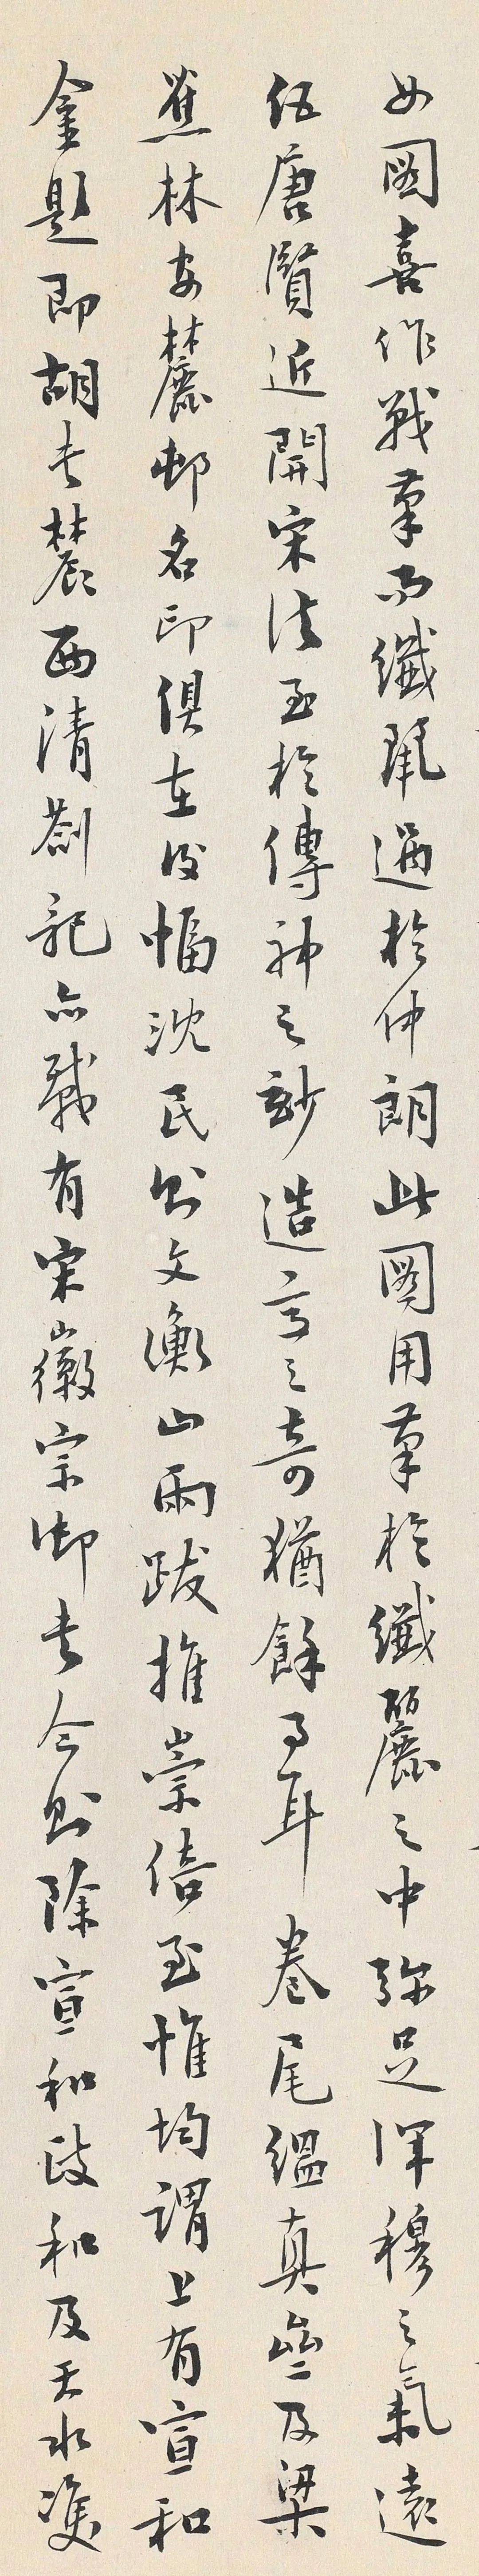 女圖喜作戰筆而纖麗過於仲朗此圖用筆於纖麗之中弥足渾穆之氣遠
伍唐賢近開宋法至於傳神之妙造意之奇猶餘事耳卷尾縕真齋及梁
蕉林安麓邨名印俱在後幅沈民則文衡山兩跋推崇倍至惟均謂上有宣和
金題即胡長麓西清劄記亦載有宋徽宗御書今則除宣和政和及天水雙